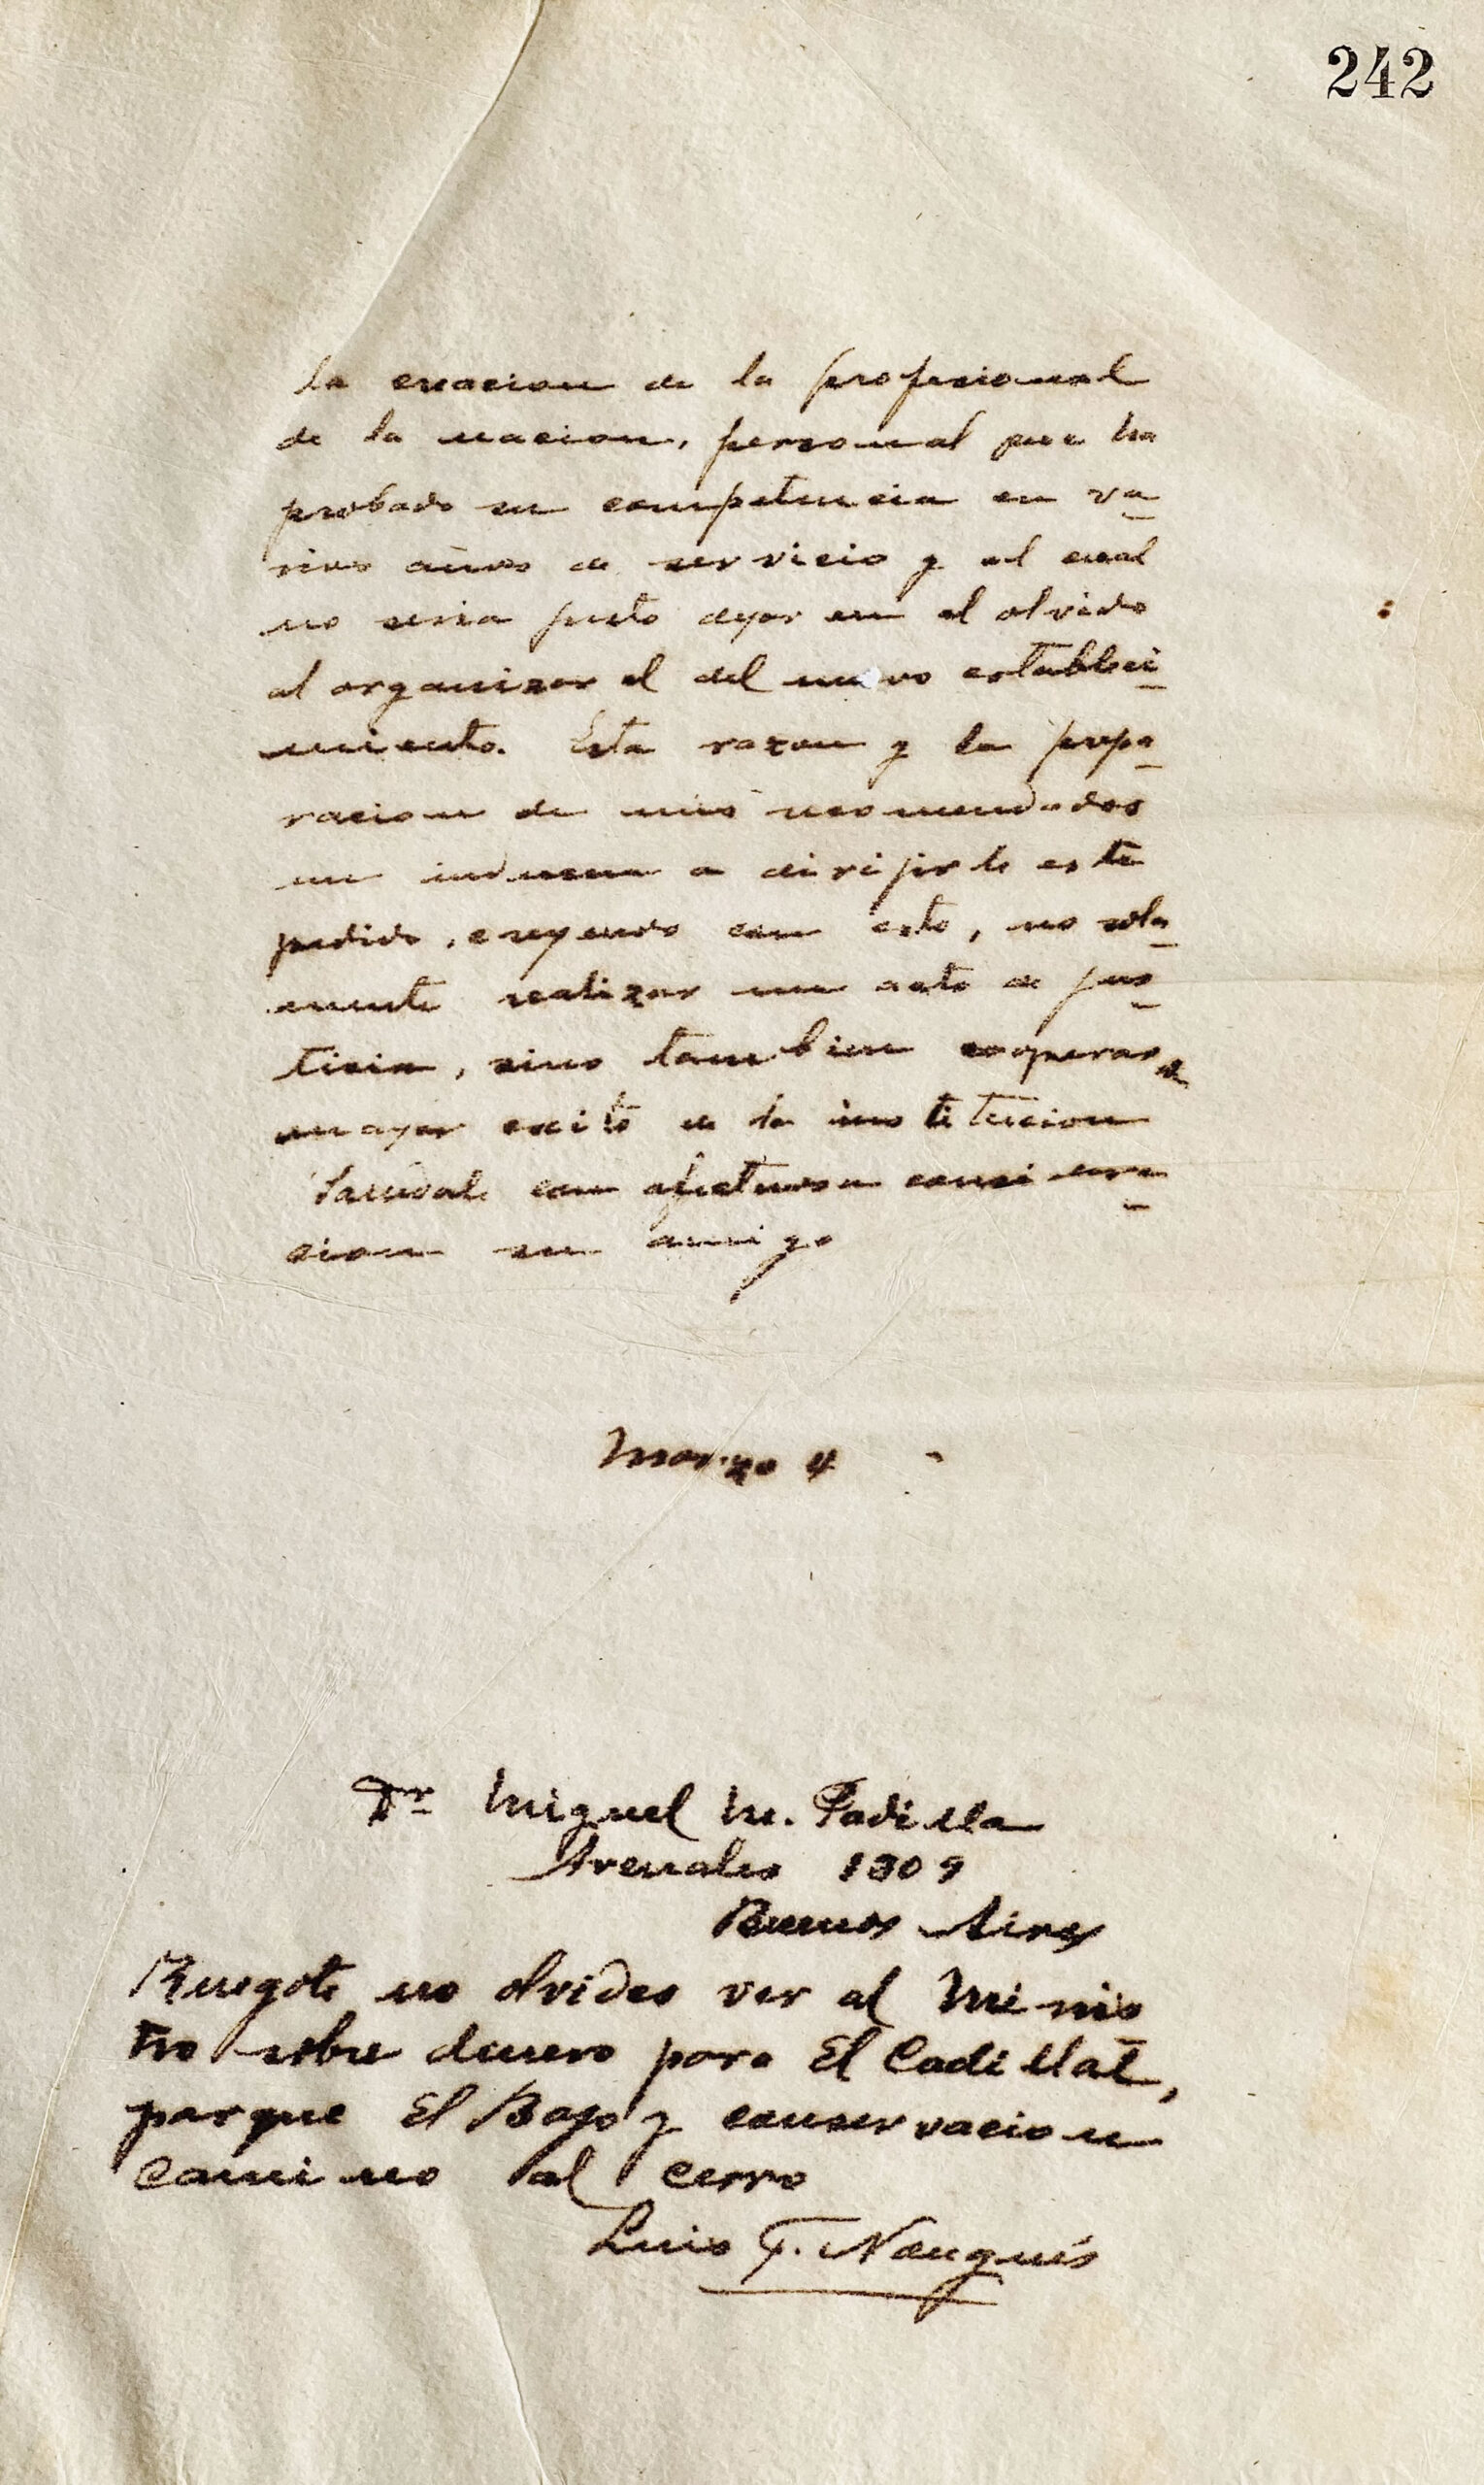 242
la creacion de la profesional
de la nacion, personal que ha
probado su competencia en va-
rios años de servicio y al cual
no seria justo dejar en el olvido
al organizar el del nuevo estableci-
miento. Esta razon y la prepa-
racion de mis recomendados
me inducen a dirijirle este
pedido, creyendo con esto, no sola-
mente realizar un acto de jus-
ticia, sino tambien cooperar al
mayor exito de la institucion
Saludale con afectuosa considera-
cion su amigo
Marzo 4
Dr Miguel M. Padilla
Arenales 1309
Buenos Aires
Ruegote no olvides ver al Minis
tro sobre dinero para El Cadillal,
parque El Bajo y conservacion
camino al cerro
Luis F. Nougués